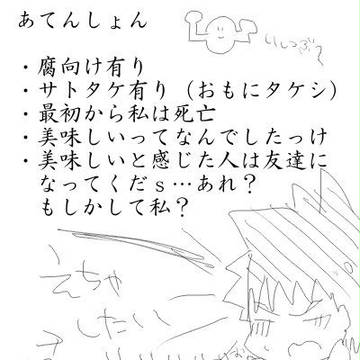 あてんしょん
いしつぶて
・腐向け有り
・サトタケ有り（おもにタケシ）
・最初から私は死亡
・美味しいってなんでしたっけ
・美味しいと感じた人は友達に
なってくだｓ…あれ？
もしかして私？
えちゃ
したい